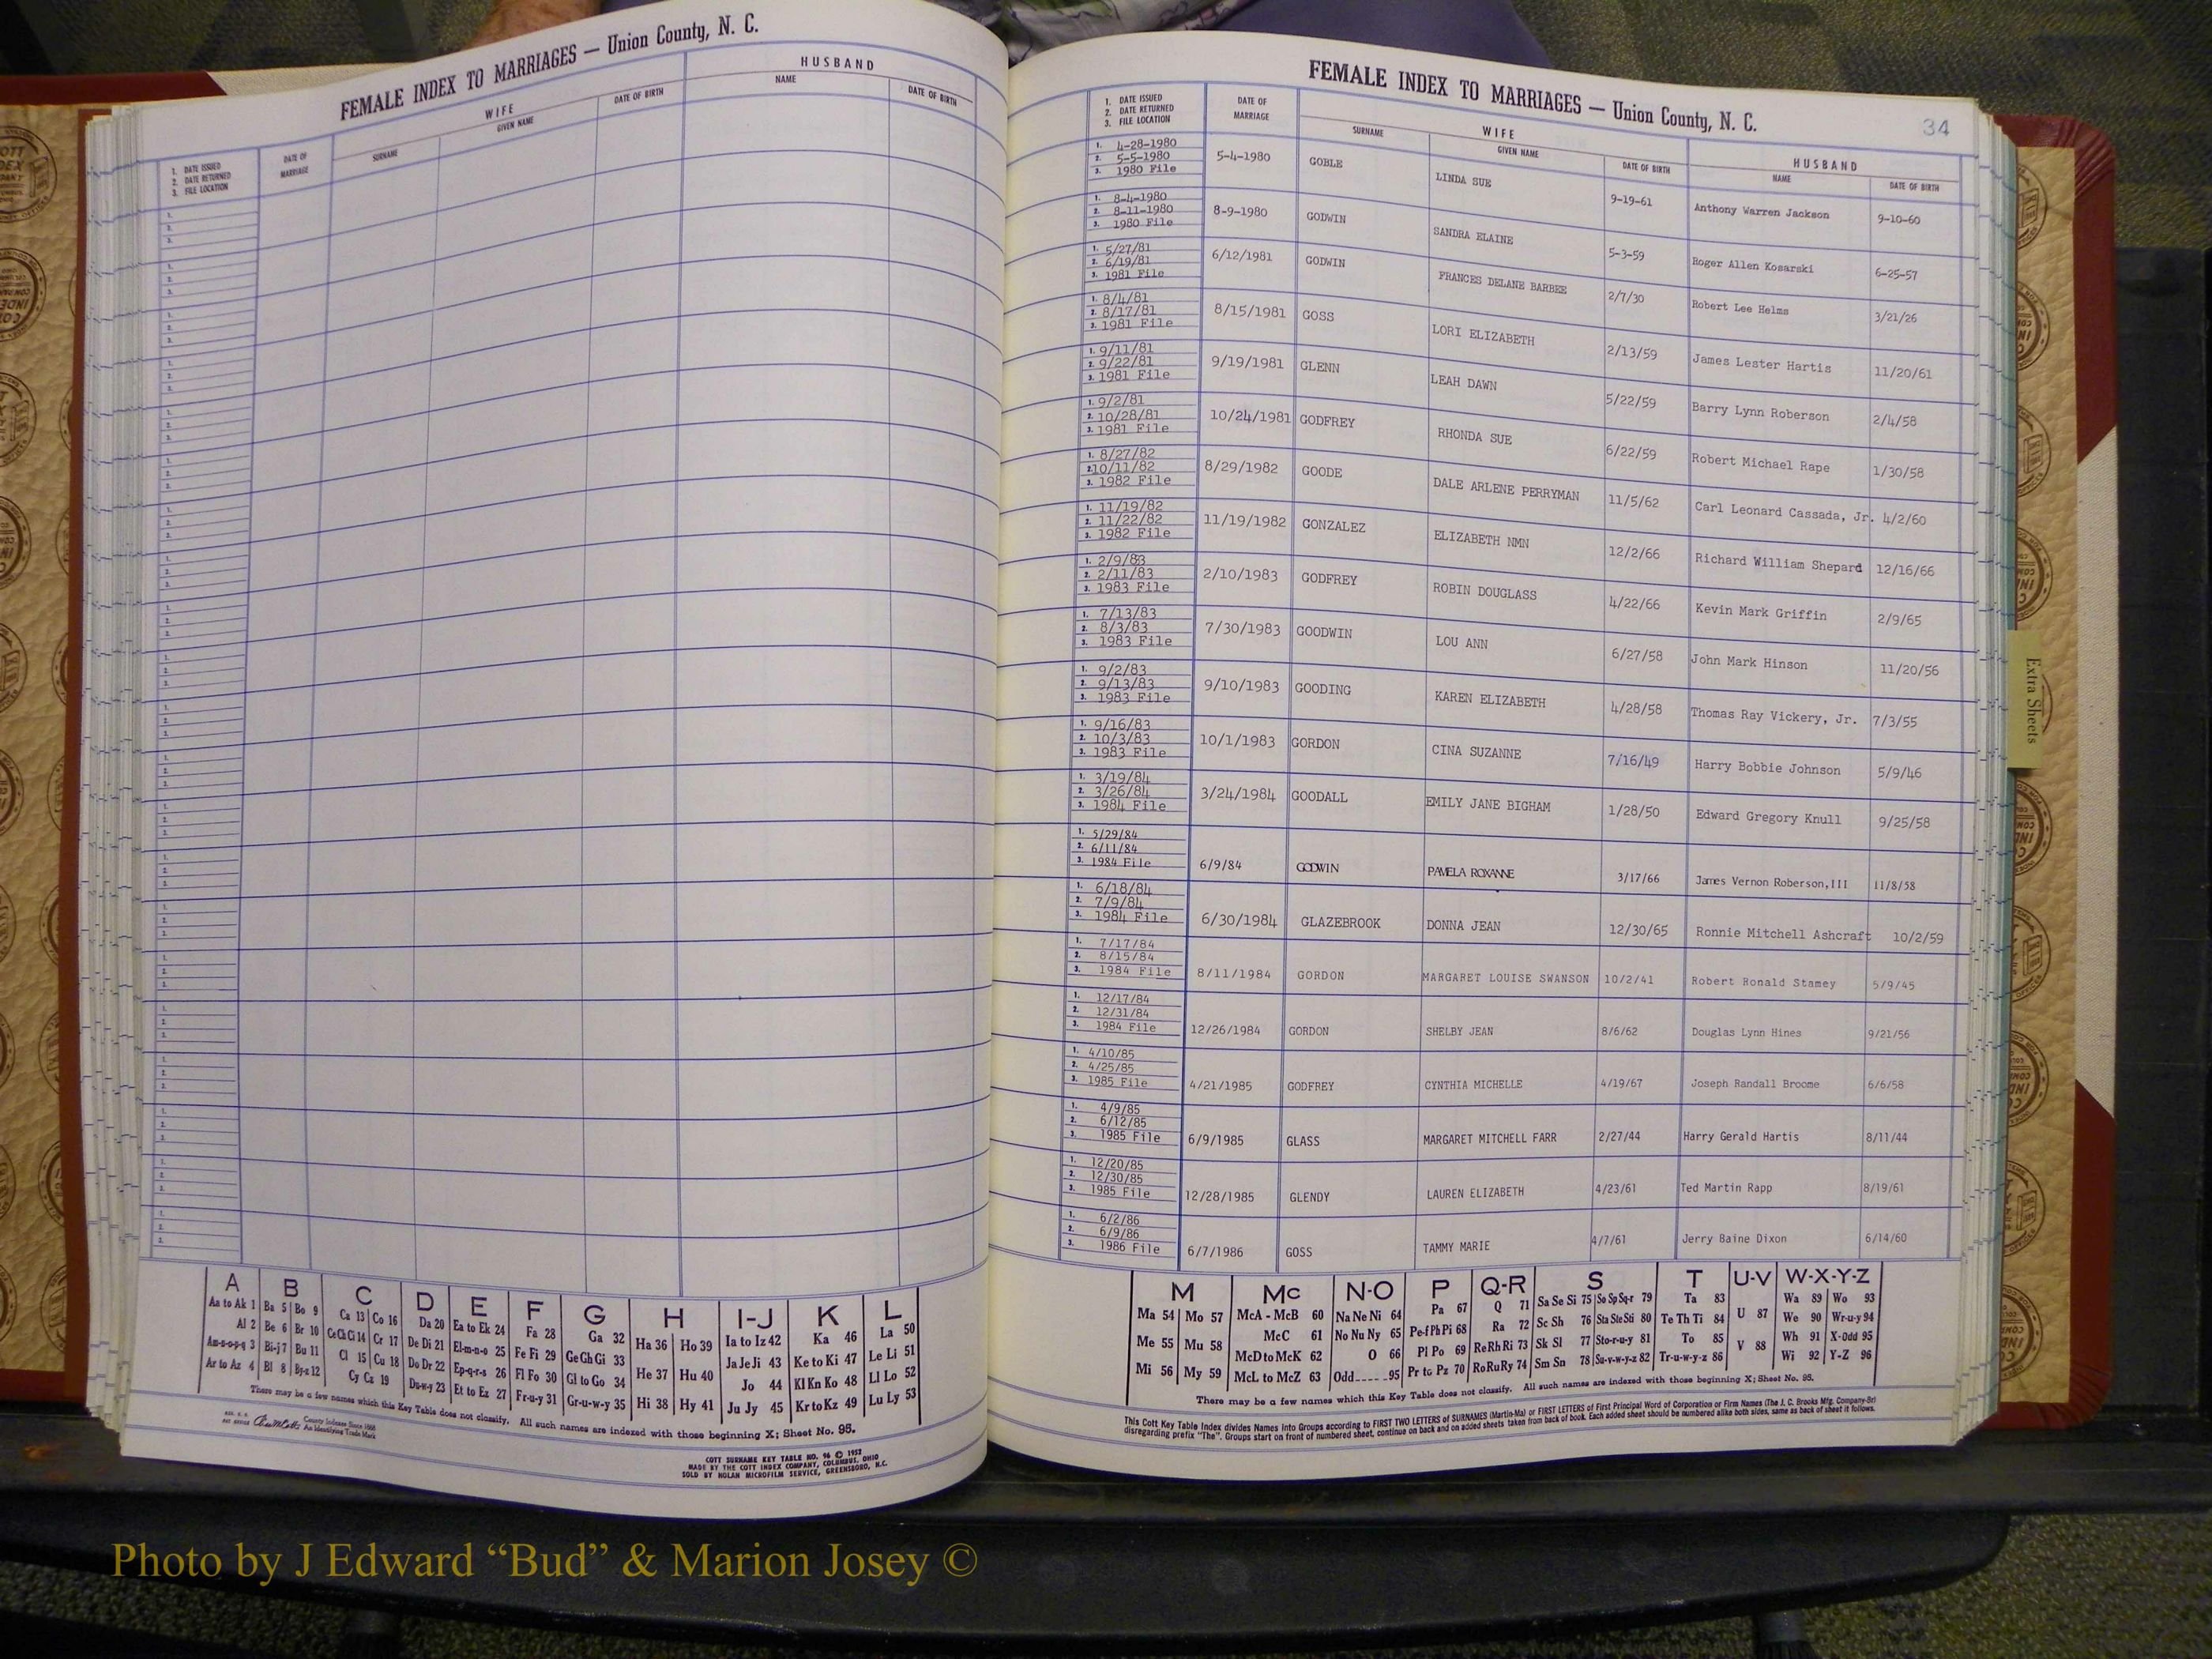 FEMALE INDEX TO MARRIAGES — Union County, N. C.
1. DATE ISSUED
2. DATE RETURNED
3. FILE LOCATION
DATE OF MARRIAGE
WIFE
SURNAME GIVEN NAME DATE OF BIRTH
HUSBAND
NAME DATE OF BIRTH
A B C D E F G H I-J K L
Aa to Ak 1 Ba 5 Bo 9 Ca 13 Co 16 Da 20 Ea to Ek 24 Fa 28 Ga 32 Ha 36 Ho 39 Ia to Iz 42 Ka 46 La 50
Al 2 Be 6 Br 10 Ce Ch Ci 14 Cr 17 De Di 21 El-m-n-o 25 Fe Fi 29 Ge Gh Gi 33 He 37 Hu 40 Ja Je Ji 43 Ke to Ki 47 Le Li 51
Am-n-o-p-q 3 Bi-j 7 Bu 11 Cl 15 Cu 18 Do Dr 22 Ep-q-r-s 26 Fl Fo 30 Gl to Go 34 Hi 38 Hy 41 Jo 44 Kl Kn Ko 48 Ll Lo 52
Ar to Az 4 Bl 8 By-z 12 Cy Cz 19 Du-w-y 23 Et to Ez 27 Fr-u-y 31 Gr-u-w-y 35 Ju Jy 45 Kr to Kz 49 Lu Ly 53
There may be a few names which this Key Table does not classify. All such names are indexed with those beginning X; Sheet No. 95.
County Indexes Since 1888
An Identifying Trade Mark
COTT SURNAME KEY TABLE NO. 96 © 1957
MADE BY THE COTT INDEX COMPANY, COLUMBUS, OHIO
SOLD BY NOLAN MICROFILM SERVICE, GREENSBORO, N.C.
FEMALE INDEX TO MARRIAGES — Union County, N. C.
34
1. DATE ISSUED
2. DATE RETURNED
3. FILE LOCATION
DATE OF MARRIAGE
WIFE
SURNAME GIVEN NAME DATE OF BIRTH
HUSBAND
NAME DATE OF BIRTH
1. 4-28-1980
2. 5-5-1980
3. 1980 File
5-4-1980 GOBLE LINDA SUE 9-19-61 Anthony Warren Jackson 9-10-60
1. 8-4-1980
2. 8-11-1980
3. 1980 File
8-9-1980 GODWIN SANDRA ELAINE 5-3-59 Roger Allen Kosarski 6-25-57
1. 5/27/81
2. 6/19/81
3. 1981 File
6/12/1981 GODWIN FRANCES DELANE BARBEE 2/7/30 Robert Lee Helms 3/21/26
1. 8/4/81
2. 8/17/81
3. 1981 File
8/15/1981 GOSS LORI ELIZABETH 2/13/59 James Lester Hartis 11/20/61
1. 9/11/81
2. 9/22/81
3. 1981 File
9/19/1981 GLENN LEAH DAWN 5/22/59 Barry Lynn Roberson 2/4/58
1. 9/2/81
2. 10/28/81
3. 1981 File
10/24/1981 GODFREY RHONDA SUE 6/22/59 Robert Michael Rape 1/30/58
1. 8/27/82
2. 10/11/82
3. 1982 File
8/29/1982 GOODE DALE ARLENE PERRYMAN 11/5/62 Carl Leonard Cassada, Jr. 4/2/60
1. 11/19/82
2. 11/22/82
3. 1982 File
11/19/1982 GONZALEZ ELIZABETH NMN 12/2/66 Richard William Shepard 12/16/66
1. 2/9/83
2. 2/11/83
3. 1983 File
2/10/1983 GODFREY ROBIN DOUGLASS 4/22/66 Kevin Mark Griffin 2/9/65
1. 7/13/83
2. 8/3/83
3. 1983 File
7/30/1983 GOODWIN LOU ANN 6/27/58 John Mark Hinson 11/20/56
1. 9/2/83
2. 9/13/83
3. 1983 File
9/10/1983 GOODING KAREN ELIZABETH 4/28/58 Thomas Ray Vickery, Jr. 7/3/55
1. 9/16/83
2. 10/3/83
3. 1983 File
10/1/1983 GORDON CINA SUZANNE 7/16/49 Harry Bobbie Johnson 5/9/46
1. 3/19/84
2. 3/26/84
3. 1984 File
3/24/1984 GOODALL EMILY JANE BIGHAM 1/28/50 Edward Gregory Knull 9/25/58
1. 5/29/84
2. 6/11/84
3. 1984 File
6/9/84 GODWIN PAMELA ROXANNE 3/17/66 James Vernon Roberson,III 11/8/58
1. 6/18/84
2. 7/9/84
3. 1984 File
6/30/1984 GLAZEBROOK DONNA JEAN 12/30/65 Ronnie Mitchell Ashcraft 10/2/59
1. 7/17/84
2. 8/15/84
3. 1984 File
8/11/1984 GORDON MARGARET LOUISE SWANSON 10/2/41 Robert Ronald Stamey 5/9/45
1. 12/17/84
2. 12/31/84
3. 1984 File
12/26/1984 GORDON SHELBY JEAN 8/6/62 Douglas Lynn Hines 9/21/56
1. 4/10/85
2. 4/25/85
3. 1985 File
4/21/1985 GODFREY CYNTHIA MICHELLE 4/19/67 Joseph Randall Broome 6/6/58
1. 4/9/85
2. 6/12/85
3. 1985 File
6/9/1985 GLASS MARGARET MITCHELL FARR 2/27/44 Harry Gerald Hartis 8/11/44
1. 12/20/85
2. 12/30/85
3. 1985 File
12/28/1985 GLENDY LAUREN ELIZABETH 4/23/61 Ted Martin Rapp 8/19/61
1. 6/2/86
2. 6/9/86
3. 1986 File
6/7/1986 GOSS TAMMY MARIE 4/7/61 Jerry Baine Dixon 6/14/60
M Mc N-O P Q-R S T U-V W-X-Y-Z
Ma 54 Mo 57 McA - McB 60 Na Ne Ni 64 Pa 67 Q 71 Sa Se Si 75 So Sp Sq-r 79 Ta 83 U 87 Wa 89 Wo 93
Me 55 Mu 58 McC 61 No Nu Ny 65 Pe-f Ph Pi 68 Ra 72 Sc Sh 76 Sta Ste Sti 80 Te Th Ti 84 V 88 We 90 Wr-u-y 94
Mi 56 My 59 McD to McK 62 O 66 Pl Po 69 Re Rh Ri 73 Sk Sl 77 Sto-r-u-y 81 To 85 Wh 91 X-Odd 95
McL to McZ 63 Odd 95 Pr to Pz 70 Ro Ru Ry 74 Sm Sn 78 Su-v-w-y-z 82 Tr-u-w-y-z 86 Wi 92 Y-Z 96
There may be a few names which this Key Table does not classify. All such names are indexed with those beginning X; Sheet No. 95.
This Cott Key Table Index divides Names into Groups according to FIRST TWO LETTERS of SURNAMES (Martin-Ma) or FIRST LETTERS of First Principal Word of Corporation or Firm Names (The J. C. Brooks Mfg. Company-Br)
disregarding prefix "The". Groups start on front of numbered sheet, continue on back and on added sheets taken from back of book. Each added sheet should be numbered alike both sides, same as back of sheet it follows.
Extra Sheets
Photo by J Edward “Bud” & Marion Josey ©